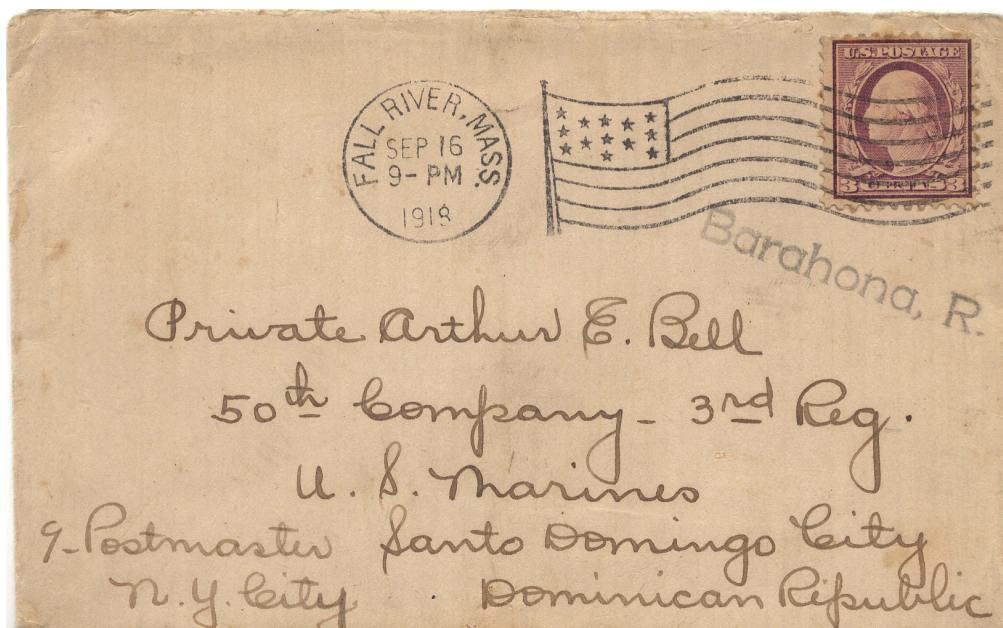 U.S. POSTAGE
3 3
FALL RIVER, MASS.
SEP 16
9- PM
1918
Barahona, R.
Private Arthur E. Bell
50th Company - 3rd Reg.
U. S. Marines
Postmaster Santo Domingo City
N. Y. City Dominican Republic